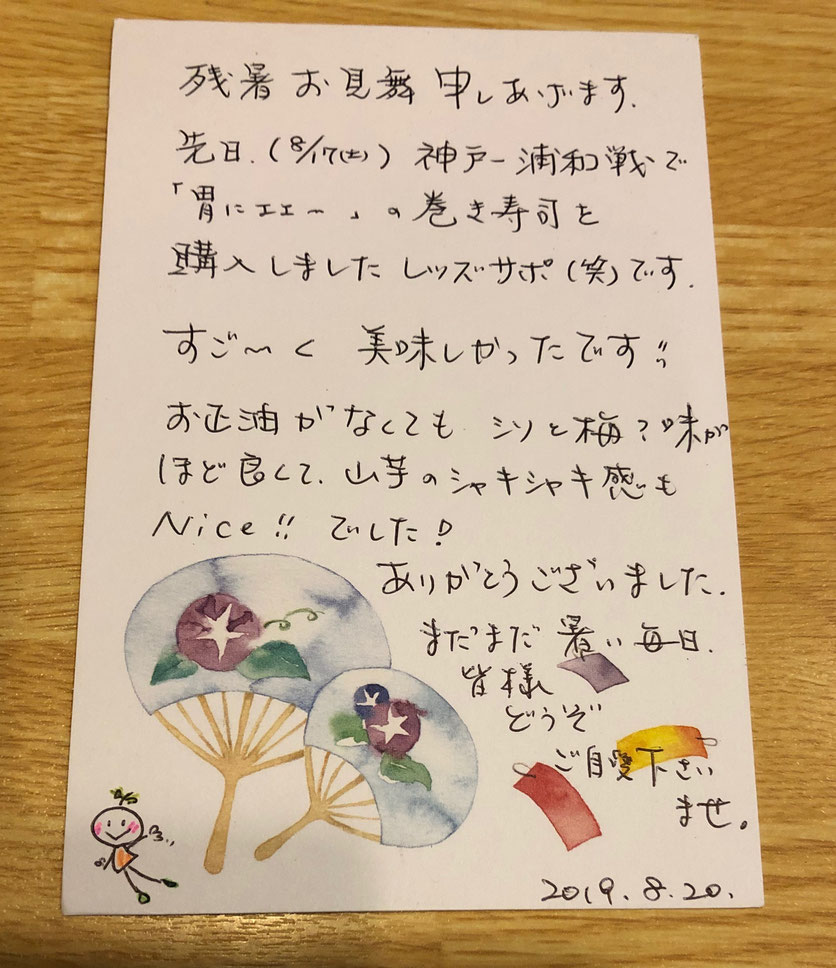 残暑お見舞申しあげます.
先日.(8/17(土))神戸ー浦和戦で
「胃にエエ〜」の巻き寿司を
購入しましたレッズサポ(笑)です.
すご〜く 美味しかったです!!
お正油がなくても シソと梅?味が
ほど良くて、山芋のシャキシャキ感も
Nice!! でした!
ありがとうございました.
まだまだ暑い毎日.
皆様
どうぞ
ご自愛下さい
ませ。
2019.8.20.